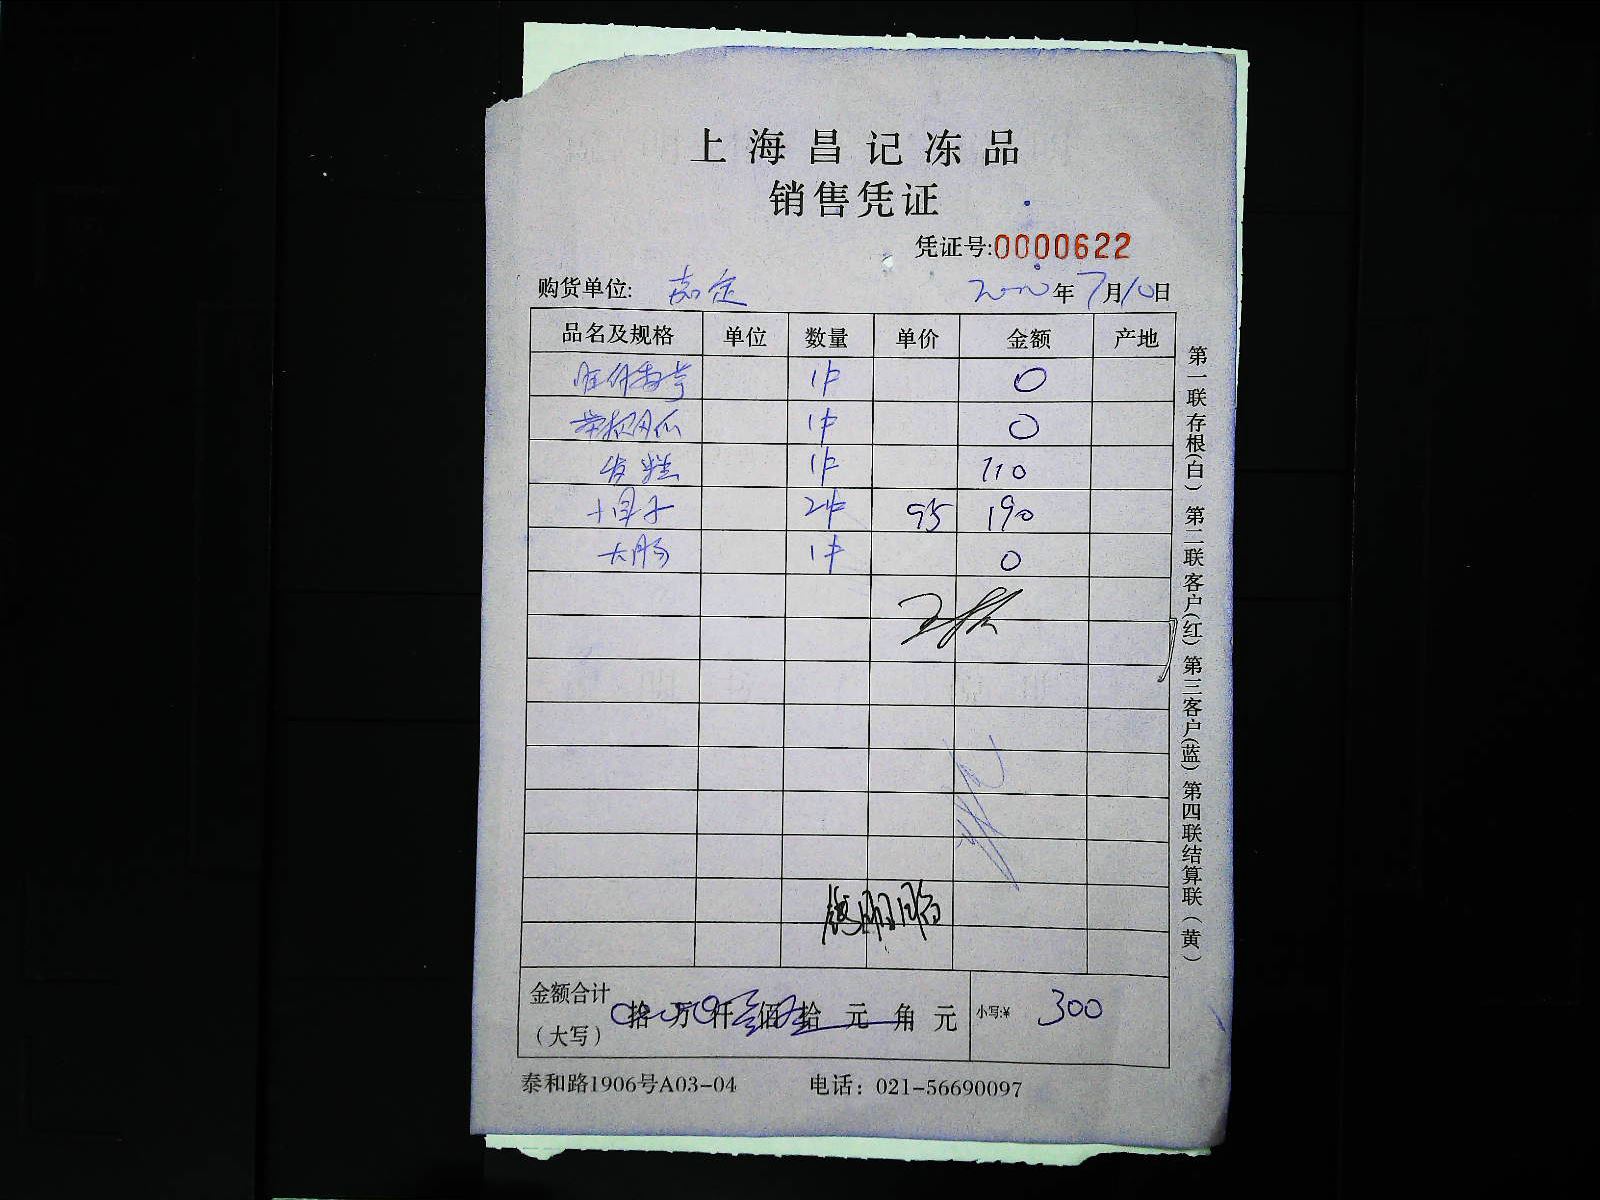 上海昌记冻品
销售凭证
凭证号:0000622
购货单位: 嘉定 年7月10日
品名及规格 单位 数量 单价 金额 产地
1件 0
1件 0
发糕 1件 110
2件 95 190
大肠 1件 0
金额合计（大写） 拾 万 仟叁佰 拾 元 角 元 小写:¥ 300
泰和路1906号A03-04 电话：021-56690097
第一联存根(白) 第二联客户(红) 第三客户(蓝) 第四联结算联（黄）